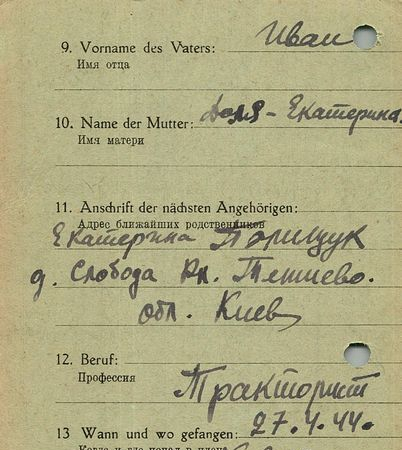 9. Vorname des Vaters: Иван
Имя отца
10. Name der Mutter: Доля - Екатерина.
Имя матери
11. Anschrift der nächsten Angehörigen:
Адрес ближайших родственников
Екатерина Полищук
д. Слобода Рн. Тетиево.
обл. Киев
12. Beruf:
Профессия
Тракторист
13 Wann und wo gefangen: 27.4.44.
Когда и где попал в плен